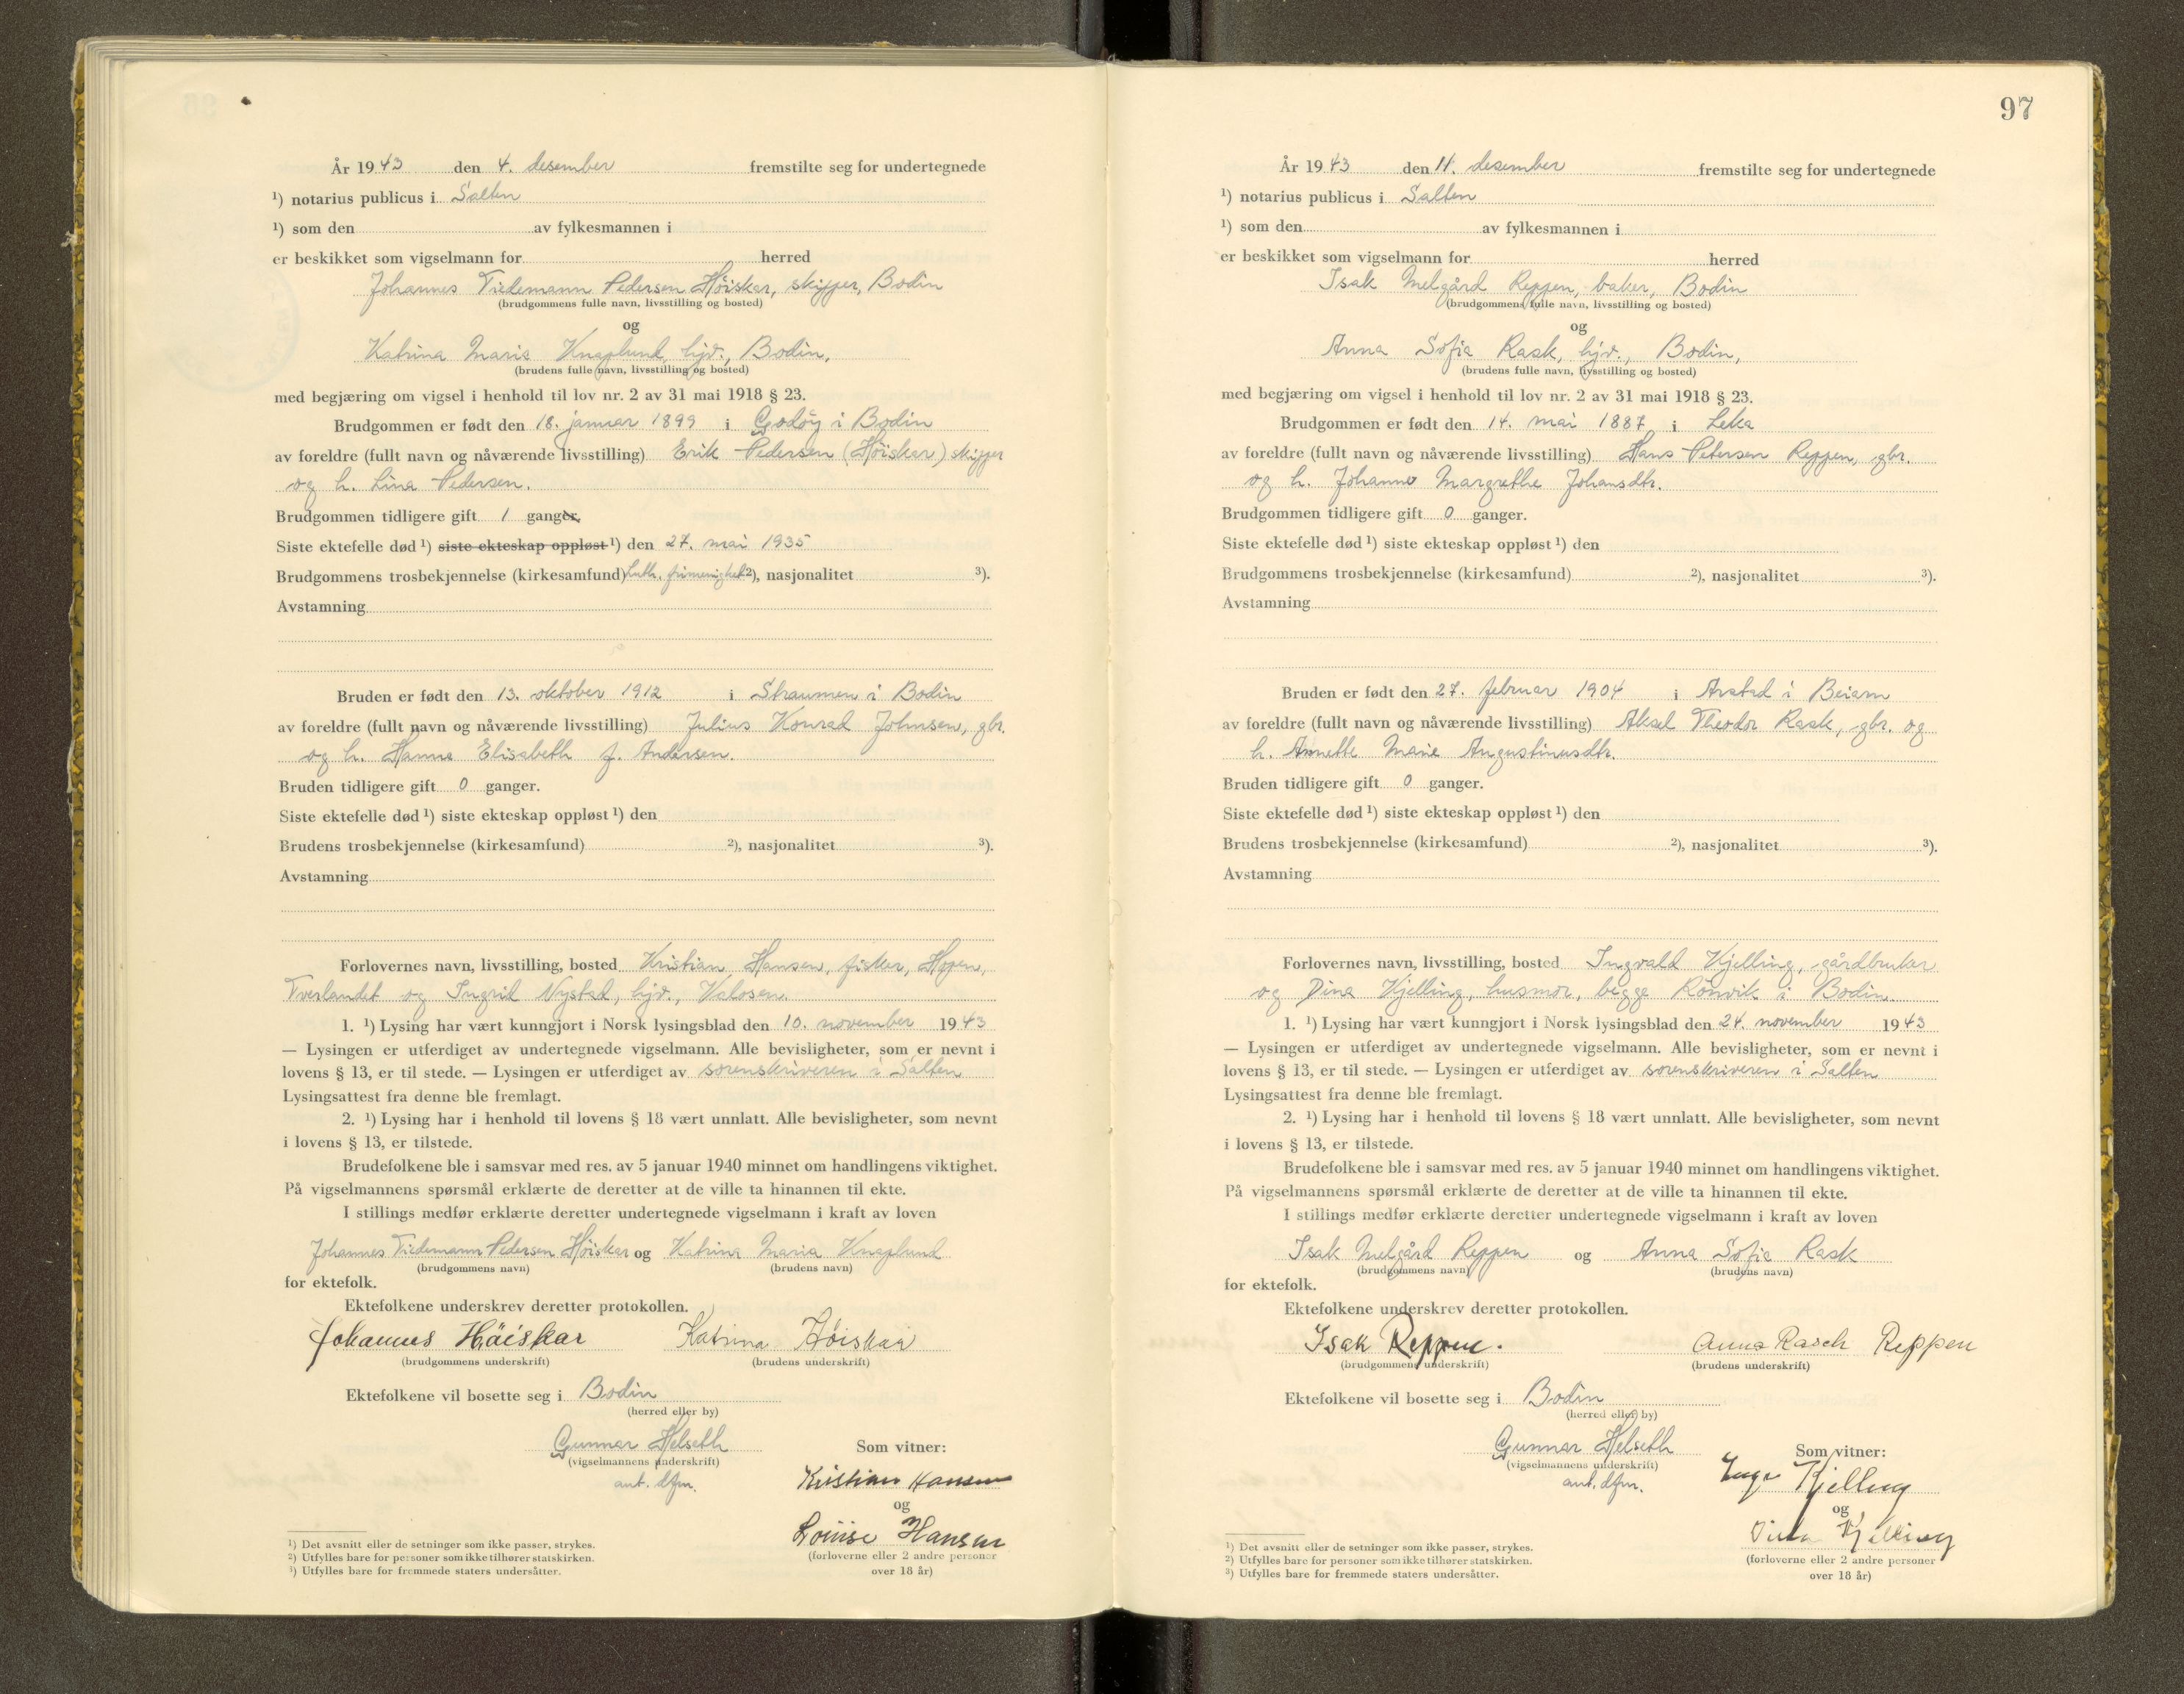 År 1943 den 4. desember fremstilte seg for undertegnede
¹) notarius publicus i Salten
¹) som den av fylkesmannen i
er beskikket som vigselmann for herred
Johannes Tidemann Pedersen Höiskar, skipper, Bodin
(brudgommens fulle navn, livsstilling og bosted)
og
Katrina Maria Knaplund, hjv., Bodin,
(brudens fulle navn, livsstilling og bosted)
med begjæring om vigsel i henhold til lov nr. 2 av 31 mai 1918 § 23.
Brudgommen er født den 18. januar 1899 i Godöy i Bodin
av foreldre (fullt navn og nåværende livsstilling) Erik Pedersen (Höiskar) skipper
og h. Lina Pedersen.
Brudgommen tidligere gift 1 ganger.
Siste ektefelle død ¹) siste ekteskap oppløst ¹) den 27. mai 1935
Brudgommens trosbekjennelse (kirkesamfund) Luth. frimenighet ²), nasjonalitet ³).
Avstamning
Bruden er født den 13. oktober 1912 i Straumen i Bodin
av foreldre (fullt navn og nåværende livsstilling) Julius Konrad Johnsen, gbr.
og h. Hanna Elisabeth f. Andersen.
Bruden tidligere gift 0 ganger.
Siste ektefelle død ¹) siste ekteskap oppløst ¹) den
Brudens trosbekjennelse (kirkesamfund) ²), nasjonalitet ³).
Avstamning
Forlovernes navn, livsstilling, bosted Kristian Hansen, fisker, Hopen,
Tverlandet og Ingrid Nystad, hjv., Valosen.
1. ¹) Lysing har vært kunngjort i Norsk lysingsblad den 10. november 1943
— Lysingen er utferdiget av undertegnede vigselmann. Alle bevisligheter, som er nevnt i
lovens § 13, er til stede. — Lysingen er utferdiget av sorenskriveren i Salten
Lysingsattest fra denne ble fremlagt.
2. ¹) Lysing har i henhold til lovens § 18 vært unnlatt. Alle bevisligheter, som nevnt
i lovens § 13, er tilstede.
Brudefolkene ble i samsvar med res. av 5 januar 1940 minnet om handlingens viktighet.
På vigselmannens spørsmål erklærte de deretter at de ville ta hinannen til ekte.
I stillings medfør erklærte deretter undertegnede vigselmann i kraft av loven
Johannes Tidemann Pedersen Höiskar og Katrina Maria Knaplund
(brudgommens navn) (brudens navn)
for ektefolk.
Ektefolkene underskrev deretter protokollen.
Johannes Höiskar Katrina Höiskar
(brudgommens underskrift) (brudens underskrift)
Ektefolkene vil bosette seg i Bodin
(herred eller by)
Gunnar Helseth Som vitner:
(vigselmannens underskrift)
aut. dfm.
Kristian Hansen
og
Louise Hansen
(forloverne eller 2 andre personer
over 18 år)
¹) Det avsnitt eller de setninger som ikke passer, strykes.
²) Utfylles bare for personer som ikke tilhører statskirken.
³) Utfylles bare for fremmede staters undersåtter.
97
År 1943 den 11. desember fremstilte seg for undertegnede
¹) notarius publicus i Salten
¹) som den av fylkesmannen i
er beskikket som vigselmann for herred
Isak Melgård Reppen, baker, Bodin
(brudgommens fulle navn, livsstilling og bosted)
og
Anna Sofia Rask, hjv., Bodin,
(brudens fulle navn, livsstilling og bosted)
med begjæring om vigsel i henhold til lov nr. 2 av 31 mai 1918 § 23.
Brudgommen er født den 14. mai 1887 i Leka
av foreldre (fullt navn og nåværende livsstilling) Hans Petersen Reppen, gbr.
og h. Johanne Margrethe Johansdtr.
Brudgommen tidligere gift 0 ganger.
Siste ektefelle død ¹) siste ekteskap oppløst ¹) den
Brudgommens trosbekjennelse (kirkesamfund) ²), nasjonalitet ³).
Avstamning
Bruden er født den 27. februar 1904 i Arstad i Beiarn
av foreldre (fullt navn og nåværende livsstilling) Aksel Theodor Rask, gbr. og
h. Annette Marie Augustinusdtr.
Bruden tidligere gift 0 ganger.
Siste ektefelle død ¹) siste ekteskap oppløst ¹) den
Brudens trosbekjennelse (kirkesamfund) ²), nasjonalitet ³).
Avstamning
Forlovernes navn, livsstilling, bosted Ingvald Kjelling, gårdbruker
og Dina Kjelling, husmor, begge Rönvik i Bodin.
1. ¹) Lysing har vært kunngjort i Norsk lysingsblad den 24. november 1943
— Lysingen er utferdiget av undertegnede vigselmann. Alle bevisligheter, som er nevnt i
lovens § 13, er til stede. — Lysingen er utferdiget av sorenskriveren i Salten
Lysingsattest fra denne ble fremlagt.
2. ¹) Lysing har i henhold til lovens § 18 vært unnlatt. Alle bevisligheter, som nevnt
i lovens § 13, er tilstede.
Brudefolkene ble i samsvar med res. av 5 januar 1940 minnet om handlingens viktighet.
På vigselmannens spørsmål erklærte de deretter at de ville ta hinannen til ekte.
I stillings medfør erklærte deretter undertegnede vigselmann i kraft av loven
Isak Melgård Reppen og Anna Sofia Rask
(brudgommens navn) (brudens navn)
for ektefolk.
Ektefolkene underskrev deretter protokollen.
Isak Reppen. Anna Rasch Reppen
(brudgommens underskrift) (brudens underskrift)
Ektefolkene vil bosette seg i Bodin
(herred eller by)
Gunnar Helseth Som vitner:
(vigselmannens underskrift)
aut. dfm.
Kjelling
og
Dina Kjelling
(forloverne eller 2 andre personer
over 18 år)
¹) Det avsnitt eller de setninger som ikke passer, strykes.
²) Utfylles bare for personer som ikke tilhører statskirken.
³) Utfylles bare for fremmede staters undersåtter.